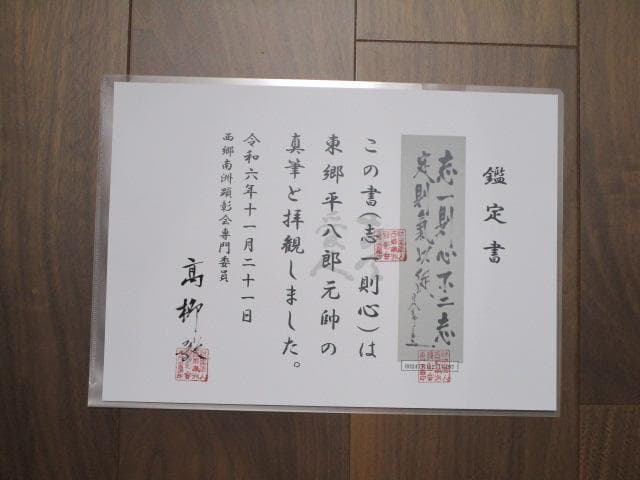 鑑定書
志一則心不二志
定則氣
この書(志一則心)は
東郷平八郎元帥の
真筆と拝観しました。
令和六年十一月二十一日
西郷南洲顕彰会専門委員
高柳毅